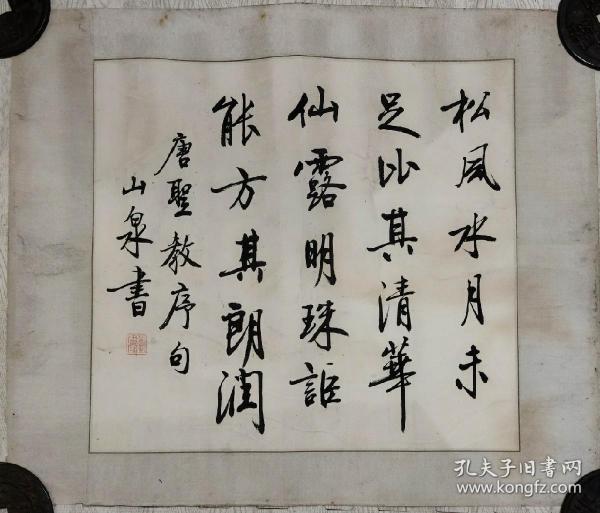 松風水月未
足比其清華
仙露明珠詎
能方其朗潤
唐聖教序句
山泉書
孔夫子旧書网
www.kongfz.com